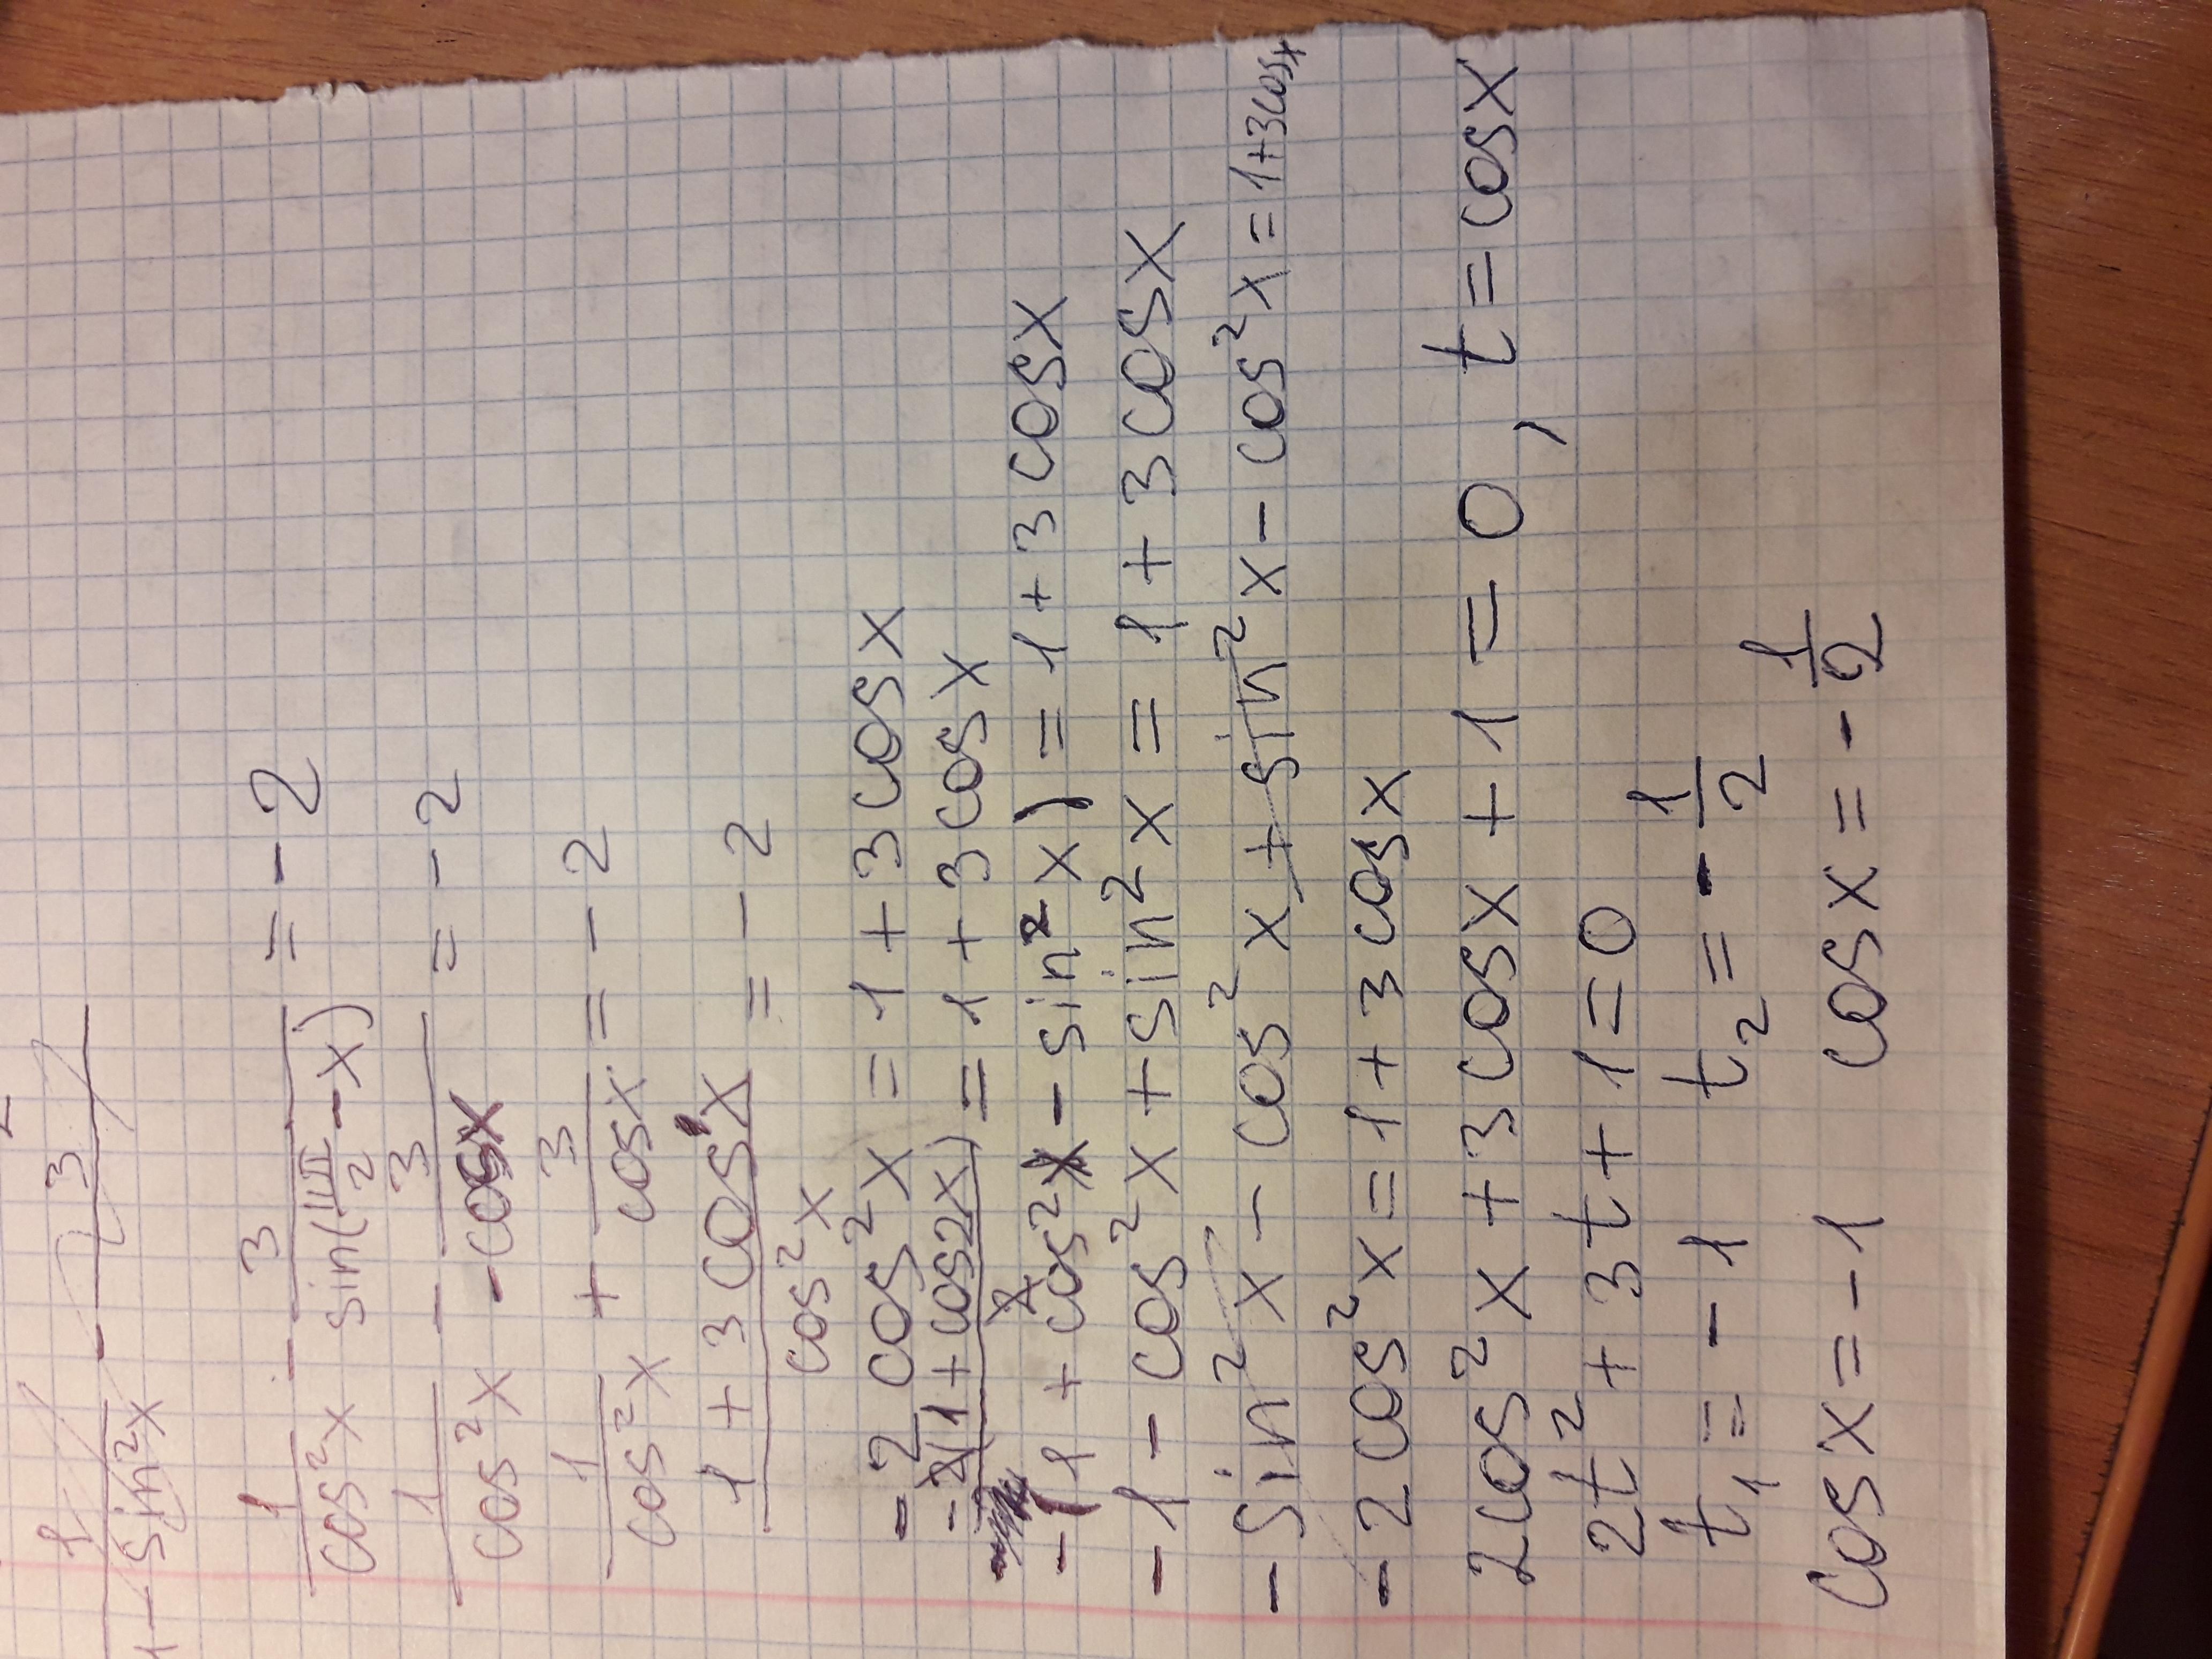 1/(1-sin²x) - 3/
1/cos²x - 3/sin(11π/2 - x) = -2
1/cos²x - 3/-cosx = -2
1/cos²x + 3/cosx = -2
(1+3cosx)/cos²x = -2
-2cos²x = 1+3cosx
-2(1+cos2x)/2 = 1+3cosx
-(1+cos²x-sin²x) = 1+3cosx
-1-cos²x+sin²x = 1+3cosx
-sin²x-cos²x+sin²x-cos²x=1+3cosx
-2cos²x=1+3cosx
2cos²x+3cosx+1=0, t=cosx
2t²+3t+1=0
t₁=-1 t₂=-1/2
cosx=-1 cosx=-1/2